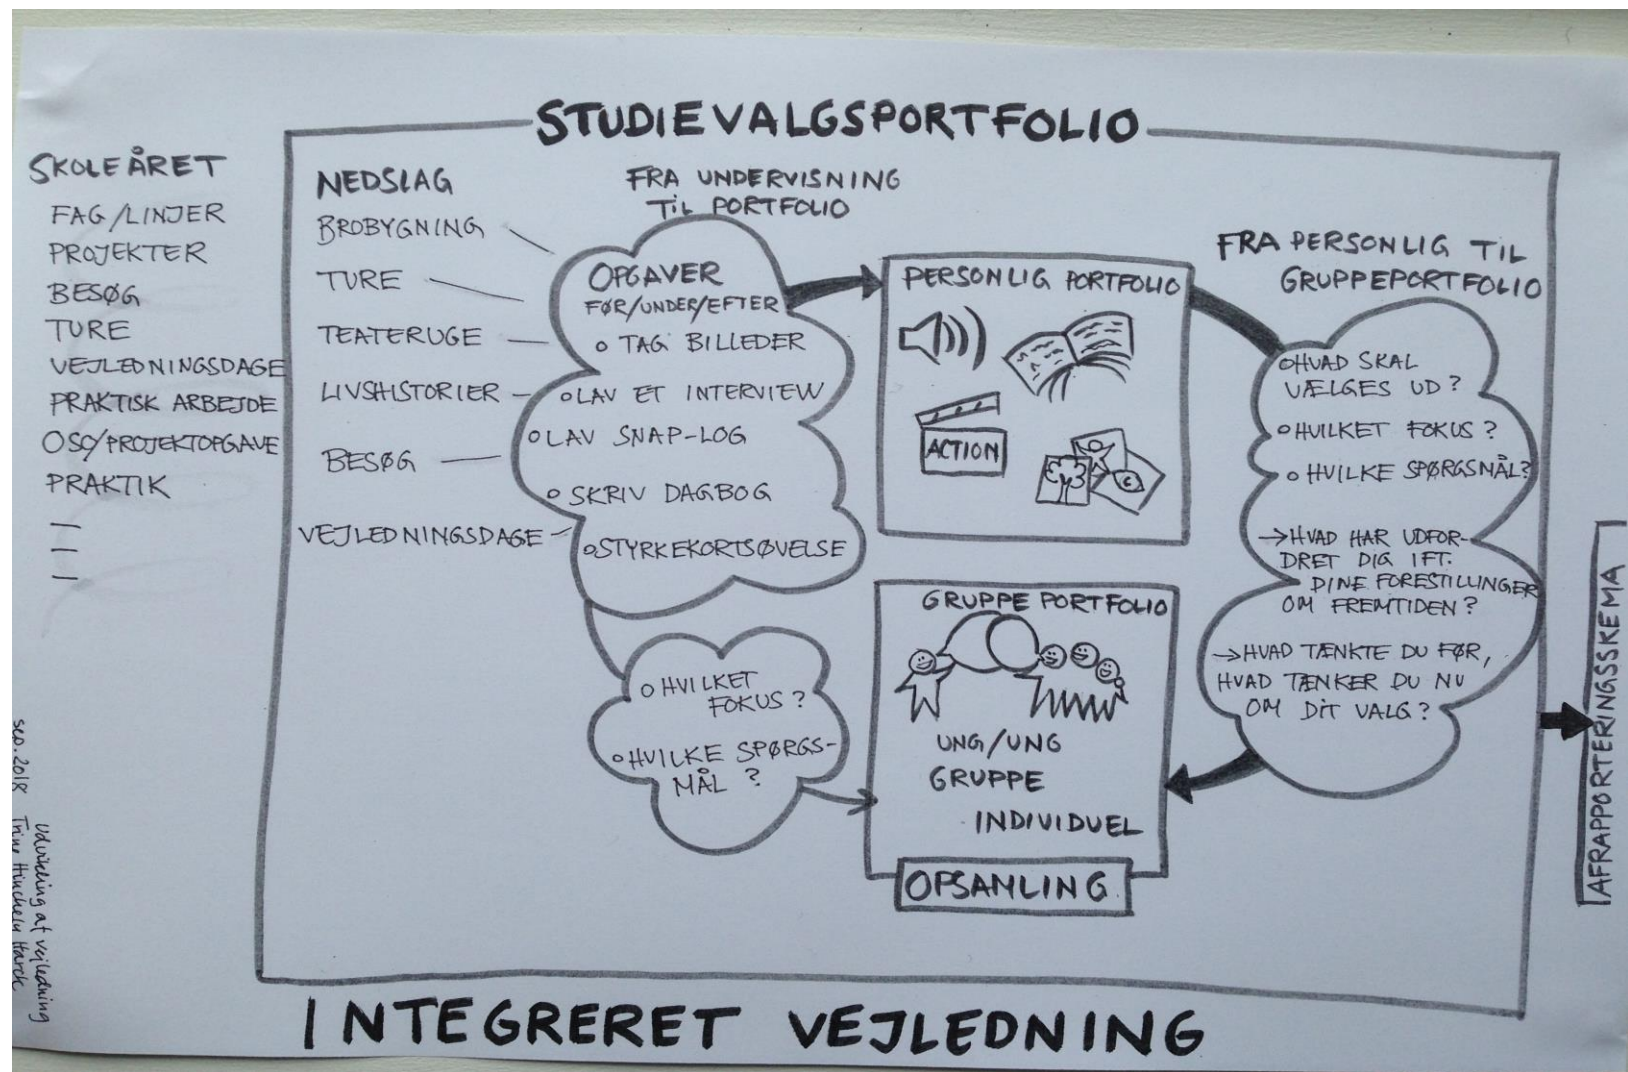 STUDIEVALGSPORTFOLIO
SKOLEÅRET
FAG/LINJER
PROJEKTER
BESØG
TURE
VEJLEDNINGSDAGE
PRAKTISK ARBEJDE
OSO/PROJEKTOPGAVE
PRAKTIK
NEDSLAG
BROBYGNING
TURE
TEATERUGE
LIVSHISTORIER
BESØG
VEJLEDNINGSDAGE
FRA UNDERVISNING
TIL PORTFOLIO
OPGAVER
FØR/UNDER/EFTER
TAG BILLEDER
LAV ET INTERVIEW
LAV SNAP-LOG
SKRIV DAGBOG
STYRKEKORTSØVELSE
HVILKET
FOKUS?
HVILKE SPØRGS-
MÅL?
PERSONLIG PORTFOLIO
ACTION
GRUPPE PORTFOLIO
UNG/UNG
GRUPPE
INDIVIDUEL
OPSAMLING
FRA PERSONLIG TIL
GRUPPEPORTFOLIO
HVAD SKAL
VÆLGES UD?
HVILKET FOKUS?
HVILKE SPØRGSMÅL?
→HVAD HAR UDFOR-
DRET DIG IFT.
DINE FORESTILLINGER
OM FREMTIDEN?
→HVAD TÆNKTE DU FØR,
HVAD TÆNKER DU NU
OM DIT VALG?
AFRAPPORTERINGSSKEMA
INTEGRERET VEJLEDNING
Udvikling af vejledning
2018 Trine Hinchely Harck